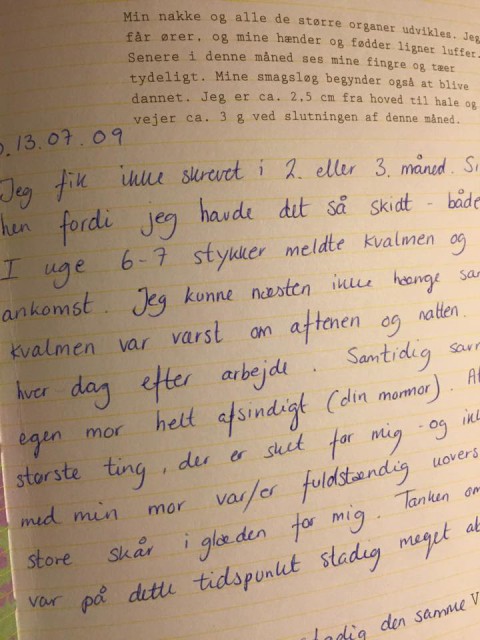 Min nakke og alle de større organer udvikles. Jeg
får ører, og mine hænder og fødder ligner luffer.
Senere i denne måned ses mine fingre og tæer
tydeligt. Mine smagsløg begynder også at blive
dannet. Jeg er ca. 2,5 cm fra hoved til hale og
vejer ca. 3 g ved slutningen af denne måned.
13.07.09
Jeg fik ikke skrevet i 2. eller 3. måned.
hen fordi jeg havde det så skidt - både
I uge 6-7 stykker meldte kvalmen og
ankomst. Jeg kunne næsten ikke hænge
kvalmen var værst om aftenen og natten.
hver dag efter arbejde. Samtidig
egen mor helt afsindigt (din mormor).
største ting, der er sket for mig - og
med min mor var/er fuldstændig
store skår i glæden for mig. Tanken
var på dette tidspunkt stadig meget
stadig den samme